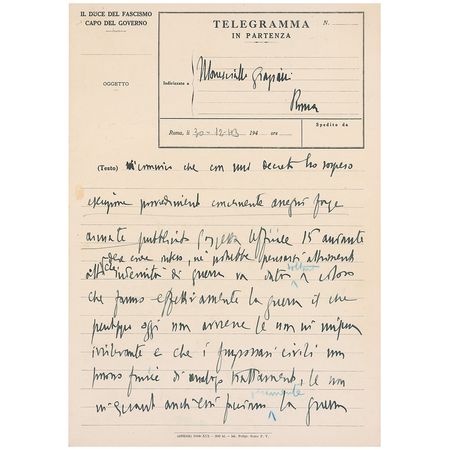 IL DUCE DEL FASCISMO
CAPO DEL GOVERNO
OGGETTO
TELEGRAMMA
IN PARTENZA
N.
Indirizzato a
Maresciallo Graziani
Roma
Roma, li 30-12-43 194 ore
Spedito da
(Testo) Vi comunico che con mio decreto ho sospeso
esecuzione provvedimenti concernente assegni forze
armate pubblicato Gazzetta Ufficiale 15 andante
né potrebbe pensarsi altrimenti
indennità di guerra va data soltanto a coloro
che fanno effettivamente la guerra il che
purtroppo oggi non avviene se non in misura
irrilevante e che i funzionari civili non
sono fruire di analogo trattamento, se non
in quanto anch'essi facciano veramente la guerra